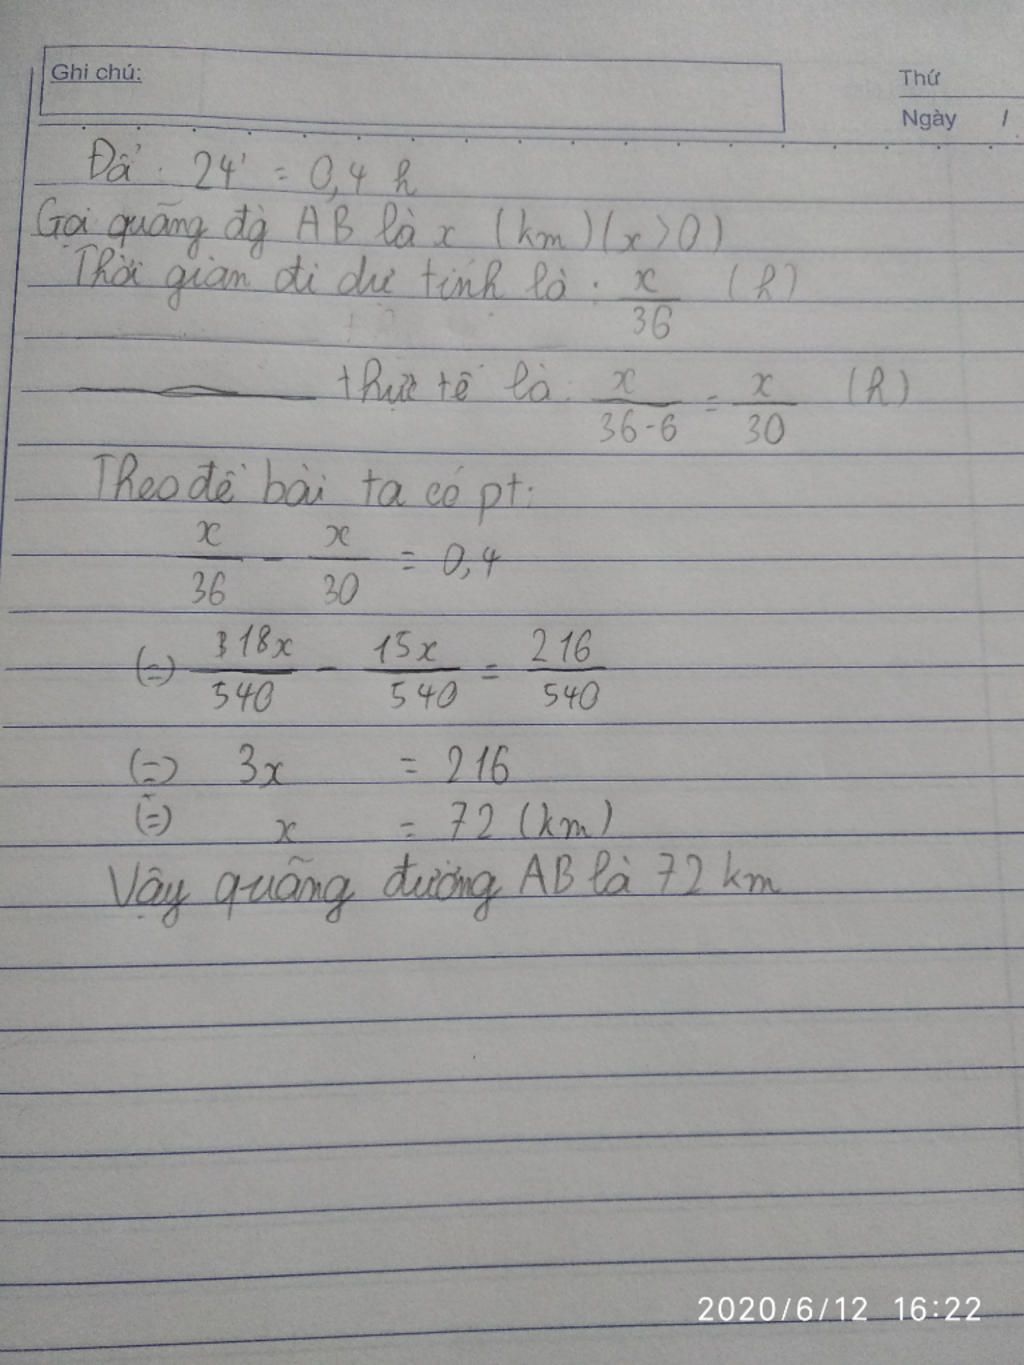 Ghi chú:
Thứ
Ngày /
Đổi: 24' = 0,4 h
Gọi quãng đg AB là x (km) (x > 0)
Thời gian đi dự tính là: x/36 (h)
——— thực tế là: x/36-6 = x/30 (h)
Theo đề bài ta có pt:
x/36 - x/30 = 0,4
(=) 18x/540 - 15x/540 = 216/540
(=) 3x = 216
(=) x = 72 (km)
Vậy quãng đường AB là 72 km
2020/6/12 16:22